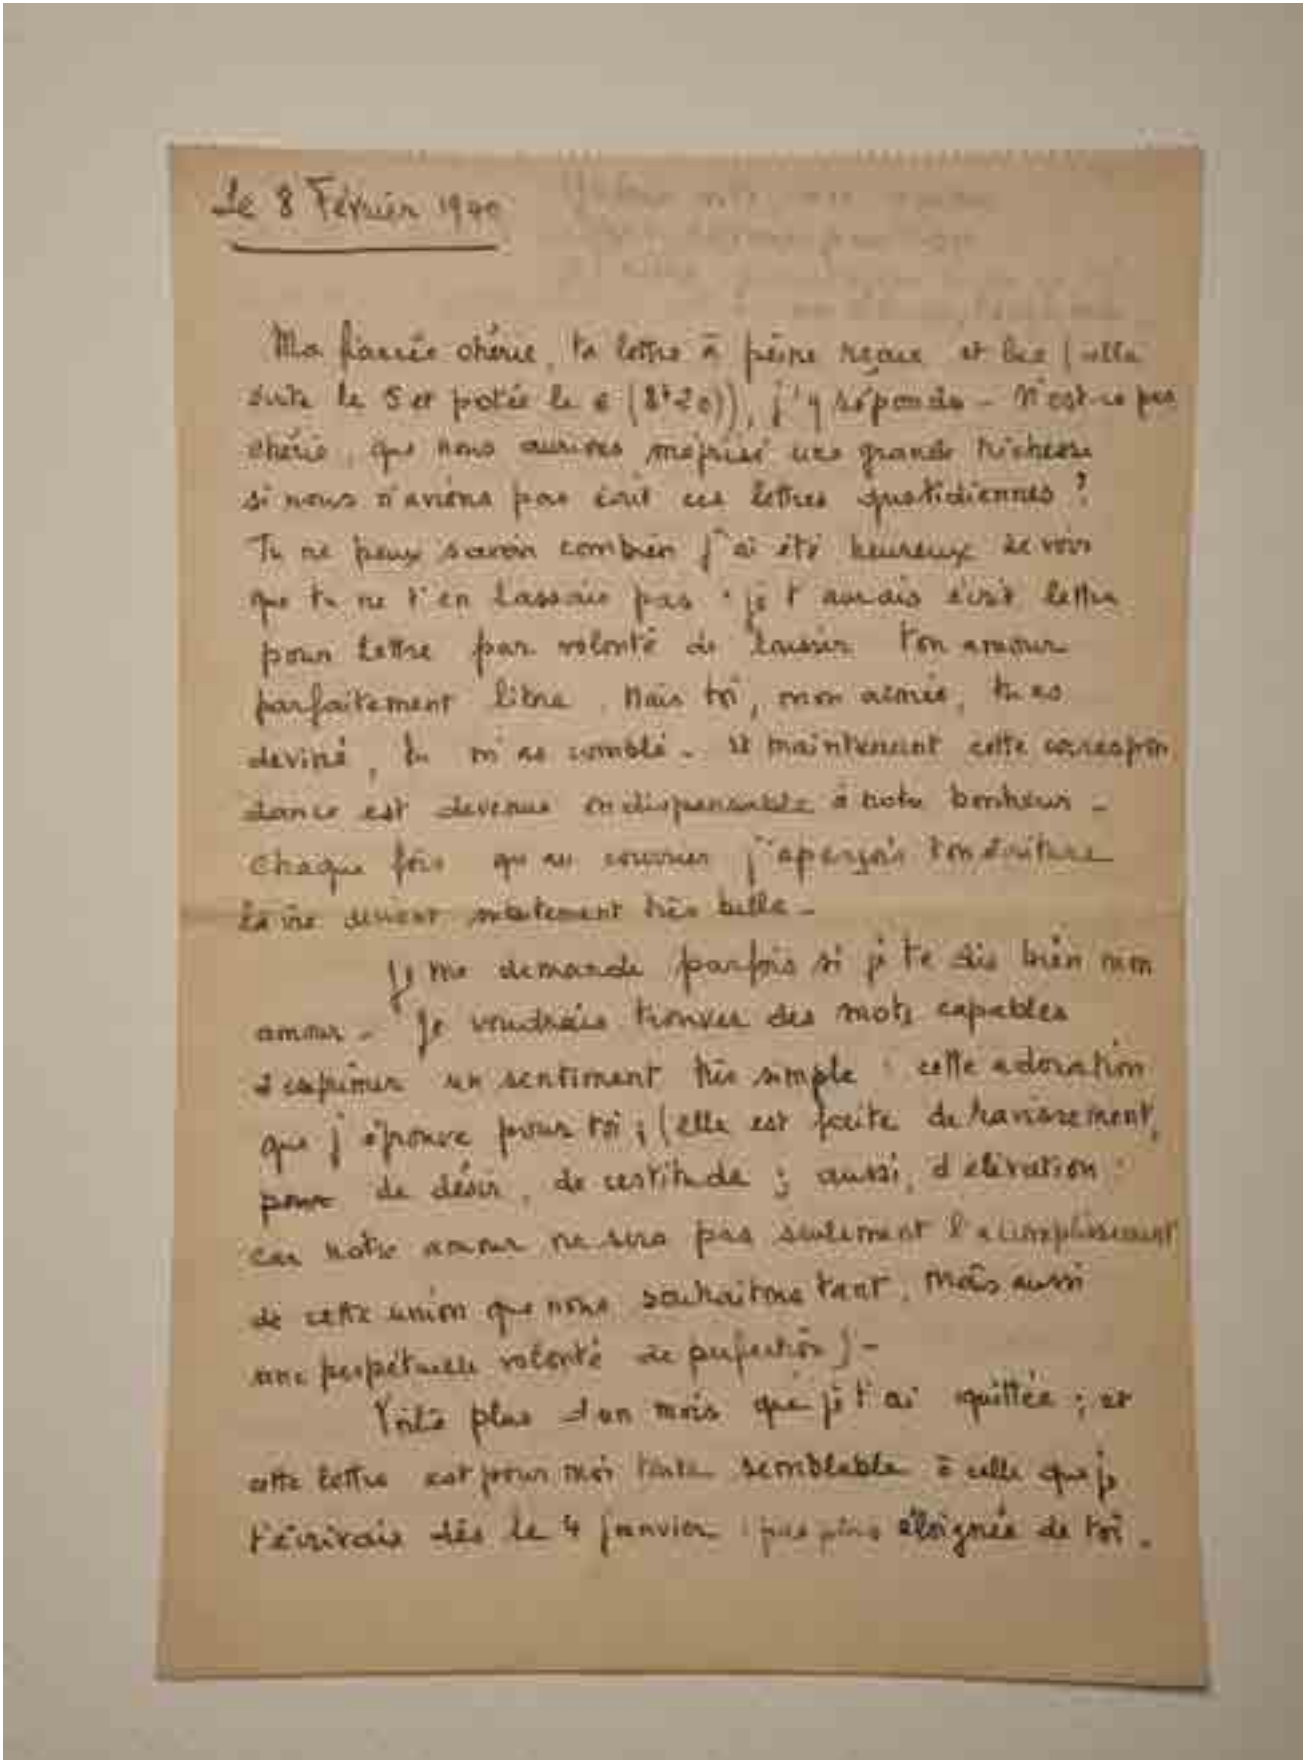 Le 8 Février 1940
Ma fiancée chérie, ta lettre à peine reçue et lue (celle
écrite le 5 et postée le 6 (8h20)), j'y réponds - N'est-ce pas
chérie, que nous aurions méprisé une grande richesse
si nous n'avions pas écrit ces lettres quotidiennes ?
Tu ne peux savoir combien j'ai été heureux de voir
que tu ne t'en lassais pas : je t'aurais écrit lettre
pour lettre par volonté de laisser ton amour
parfaitement libre. Mais toi, mon aimée, tu as
deviné, tu m'as comblé - et maintenant cette correspon
dance est devenue indispensable à notre bonheur -
Chaque fois qu'au courrier j'aperçois ton écriture
la vie devient subitement très belle -
Je me demande parfois si je te dis bien mon
amour - Je voudrais trouver des mots capables
d'exprimer un sentiment très simple : cette adoration
que j'éprouve pour toi ; (elle est faite de ravissement,
pour de désir, de certitude ; aussi, d'élévation :
car notre amour ne sera pas seulement l'accomplissement
de cette union que nous souhaitons tant, mais aussi
une perpétuelle volonté de perfection) -
Voilà plus d'un mois que je t'ai quittée ; et
cette lettre est pour moi toute semblable à celle que je
t'écrivais dès le 4 janvier : pas plus éloignée de toi.